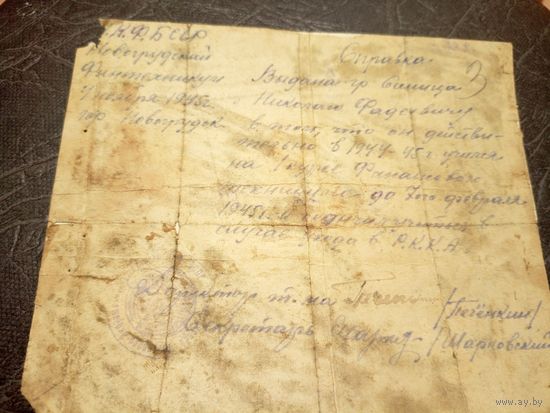 Н.К.Ф. БССР
Новогрудский
Финтехникум
7 ноября 1945 г.
гор Новогрудок
Справка
Выдана гр Синица
Николаю Фадеевичу
в том, что он действи-
тельно в 1944-45 г. учился
на 1 курсе Финансового
техникума до 7го февраля
1945 г. и
случае ухода в Р.К.К.А.
Директор т-ма /Печёнкин/
Секретарь /Марковский
www.ay.by